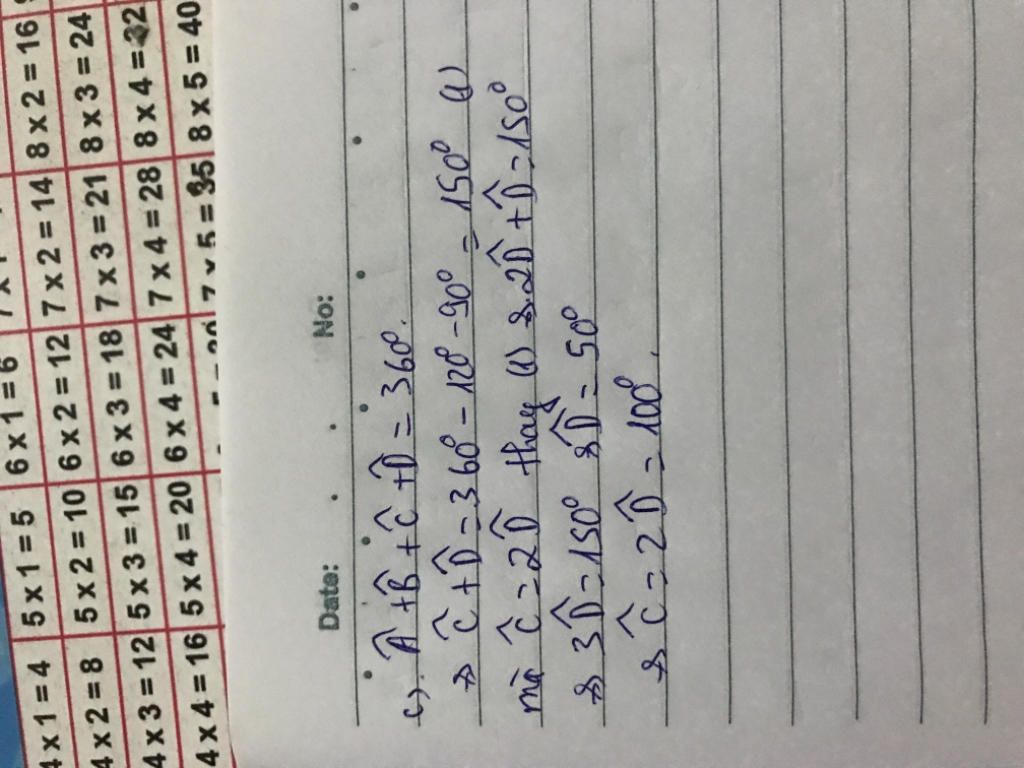 4 x 1 = 4 5 x 1 = 5 6 x 1 = 6
4 x 2 = 8 5 x 2 = 10 6 x 2 = 12 7 x 2 = 14 8 x 2 = 16
4 x 3 = 12 5 x 3 = 15 6 x 3 = 18 7 x 3 = 21 8 x 3 = 24
4 x 4 = 16 5 x 4 = 20 6 x 4 = 24 7 x 4 = 28 8 x 4 = 32
7 x 5 = 35 8 x 5 = 40
Date: No:
c). Â + B̂ + Ĉ + D̂ = 360°.
=> Ĉ + D̂ = 360° - 120° - 90° = 150° (1)
mà Ĉ = 2D̂ thay (1) => 2D̂ + D̂ = 150°
=> 3D̂ = 150° => D̂ = 50°
=> Ĉ = 2D̂ = 100°.